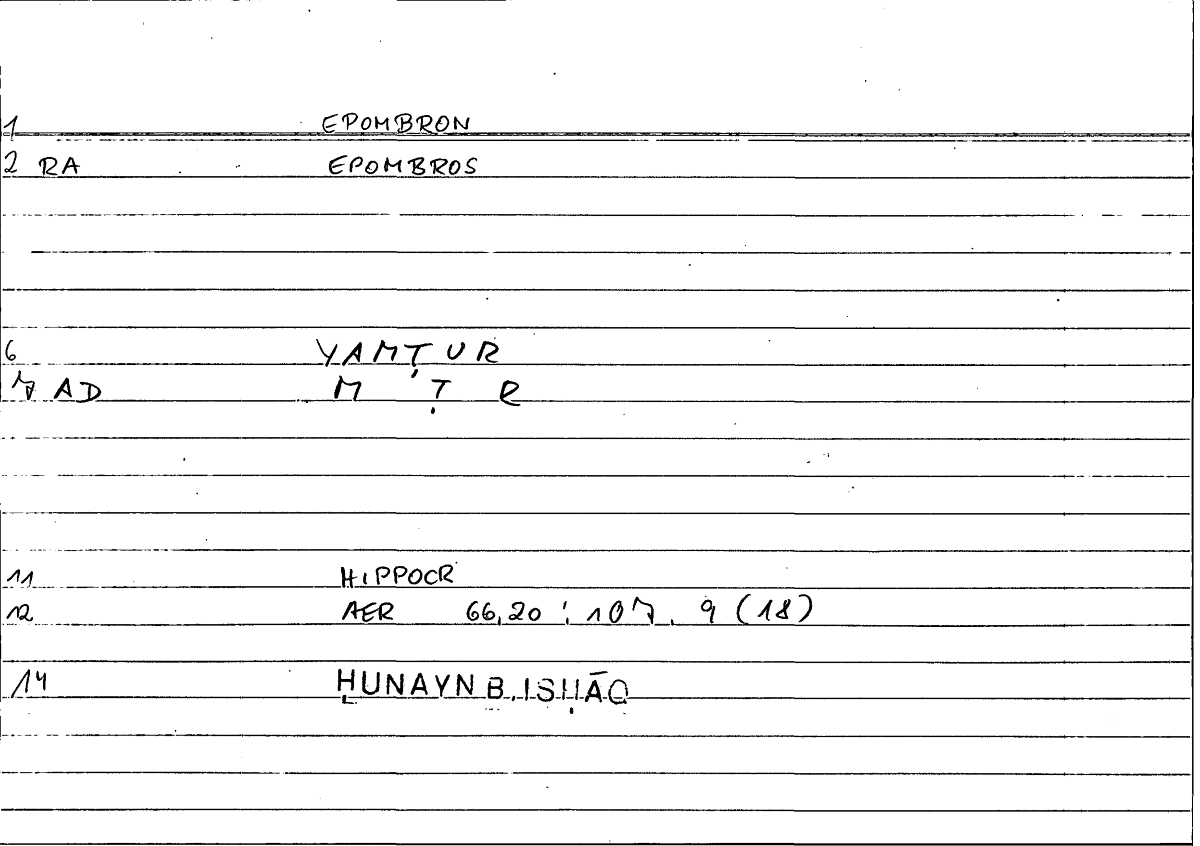 1 EPOMBRON
2 RA EPOMBROS
6 YAMṬUR
7 AD M Ṭ R
11 HIPPOCR
12 AER 66,20 : 107, 9 (18)
14 ḤUNAYN B. ISḤĀQ